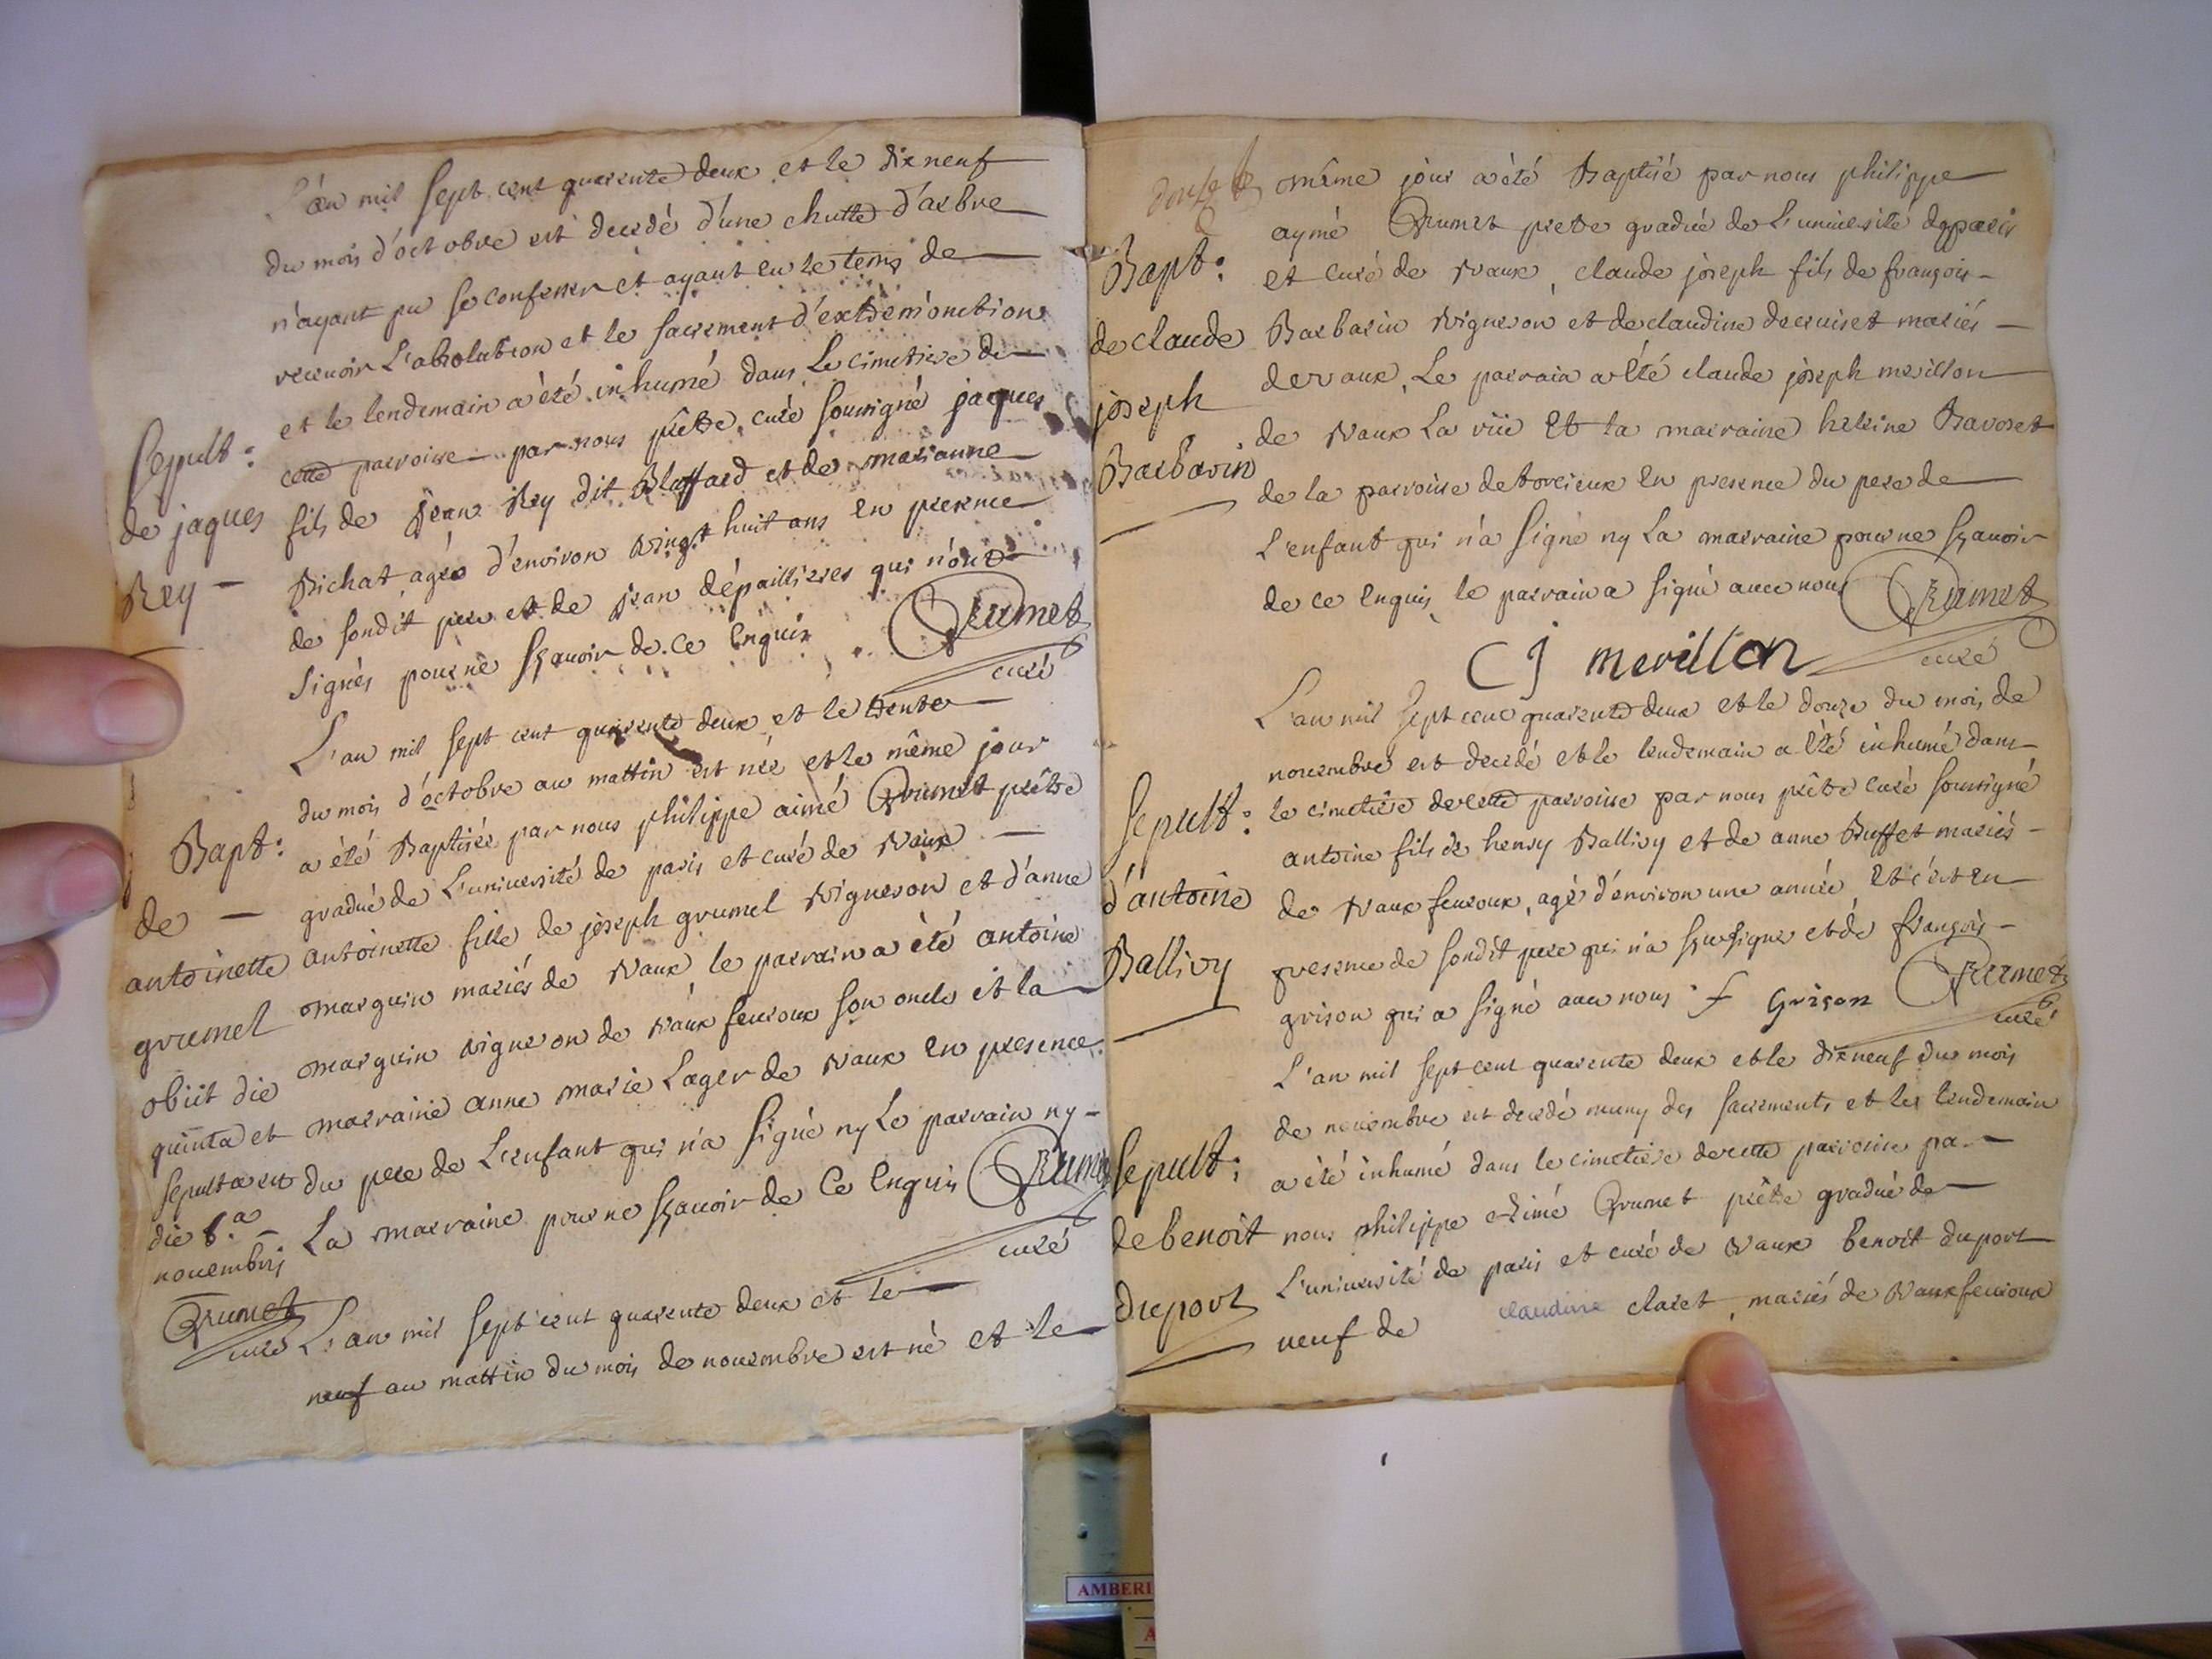 L'an mil sept cent quarente deux et le dix neuf
du mois d'octobre est decedé d'une chutte d'arbre
n'ayant pu se confesser et ayant eu le tems de
recevoir L'absolution et le sacrement d'extrem'onction
et le lendemain a été inhumé dans Le cimetiere de
cette parroisse par nous prêtre curé soussigné jaques
fils de jean Rey dit Bluffard et de marianne
Bichat agéé d'environ vingt huit ans en presence
de sondit pere et de jean dépaillieres qui n'ont
signés pour ne sçavoir de ce Enquis Grumet
curé
Sepult:
de jaques
Rey
L'an mil sept cent quarente deux et le trente
du mois d'octobre au mattin est née et le même jour
a été Baptisée par nous philippe aimé Grumet prêtre
gradué de L'université de paris et curé de Vaux
antoinette fille de joseph grumel Vigneron et d'anne
marguin mariés de Vaux, le parrain a été antoine
marguin vigneron de Vaux fevroux son oncle et la
marraine anne marie Lager de Vaux en presence
du pere de L'enfant qui n'a signé ny Le parrain ny
La marraine pour ne sçavoir de Ce Enquis Grumet
curé
Bapt:
de
antoinette
grumel
obiit die
quinta et
sepulta est
die 6.a
novembris
Grumet
curé
L'an mil sept cent quarente deux et le
neuf au mattin du mois de novembre est né et le
même jour a été Baptisé par nous philippe
aymé Grumet pretre gradué de L'université de paris
et curé de Vaux, claude joseph fils de françois
Barbarin Vigneron et de claudine decruiset mariés
de vaux, Le parrain a été claude joseph merillon
de Vaux La ville Et la marraine heleine Bavoset
de la parroisse de torcieux en presence du pere de
L'enfant qui n'a signé ny La marraine pour ne sçavoir
de ce enquis, le parrain a signé avec nous Grumet
C J merillon curé
Bapt:
de claude
joseph
Barbarin
L'an mil sept cent quarente deux et le douze du mois de
novembre est decedé et le lendemain a été inhumé dans
le cimetière de cette parroisse par nous prêtre curé soussigné
antoine fils de henry Ballivy et de anne Buffet mariés
de Vaux fevroux, agé d'environ une année, Et c'est en
presence de sondit pere qui n'a sçu signer et de françois
grison qui a signé avec nous f Grison Grumet
curé
Sepult:
d'antoine
Ballivy
L'an mil sept cent quarente deux et le dix neuf du mois
de novembre est decedé muny des sacrements et le lendemain
a été inhumé dans le cimetiere de cette parroisse par
nous philippe Aimé Grumet prêtre gradué de
L'université de paris et curé de Vaux benoit duport
veuf de claudine claret, mariés de Vaux fevroux
Sepult:
de benoit
duport
AMBERI
A